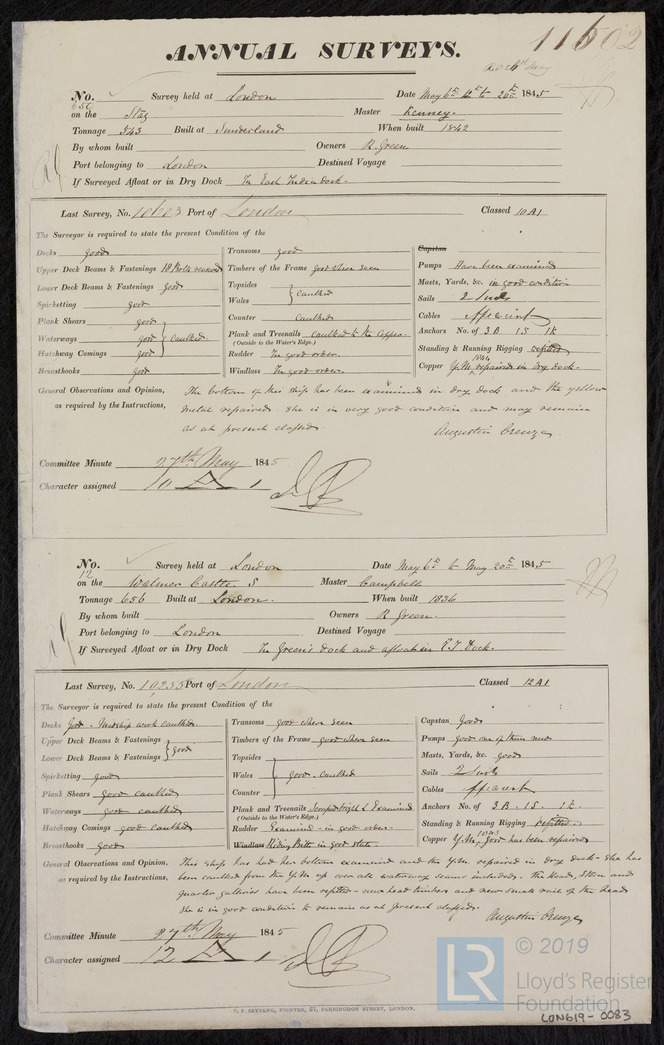 11602
ANNUAL SURVEYS.
No. 650 Survey held at London Date May 6th 12th to 20th 1845
on the Stag Master Kenney
Tonnage 543 Built at Sunderland When built 1842
By whom built Owners R. Green
Port belonging to London Destined Voyage
If Surveyed Afloat or in Dry Dock In East India dock.
Last Survey, No. 10603 Port of London Classed 10 A1
The Surveyor is required to state the present Condition of the
Decks good
Upper Deck Beams & Fastenings 18 Bolts renewed
Lower Deck Beams & Fastenings good
Spirketting good
Plank Shears good
Waterways good caulked
Hatchway Comings good
Breasthooks good
Transoms good
Timbers of the Frame good where seen
Topsides
Wales caulked
Counter caulked
Plank and Treenails caulked to the copper
(Outside to the Water's Edge.)
Rudder In good order
Windlass In good order
Capstan
Pumps Have been examined
Masts, Yards, &c. in good condition
Sails 2 Suits
Cables efficient
Anchors No. of 3B 1S 1K
Standing & Running Rigging refitted
Copper Y.M. 1844 repaired in dry dock.
General Observations and Opinion, The bottom of this ship has been examined in dry dock and the yellow
as required by the Instructions, metal repaired she is in very good condition and may remain
as at present classed.
Augustin Creuze
Committee Minute 27th May 1845
Character assigned 10 A 1
No. 12 Survey held at London Date May 6th to May 20th 1845
on the Walmer Castle S Master Campbell
Tonnage 656 Built at London. When built 1836
By whom built Owners R Green.
Port belonging to London Destined Voyage
If Surveyed Afloat or in Dry Dock In Green's dock and afloat in E I Dock.
Last Survey, No. 10255 Port of London Classed 12 A1
The Surveyor is required to state the present Condition of the
Decks good - Midship work caulked.
Upper Deck Beams & Fastenings
Lower Deck Beams & Fastenings good
Spirketting good
Plank Shears good caulked
Waterways good caulked
Hatchway Comings good caulked
Breasthooks good
Transoms good where seen
Timbers of the Frame good where seen
Topsides
Wales good - caulked
Counter
Plank and Treenails scraped bright & Examined
(Outside to the Water's Edge.)
Rudder Examined - in good order
Windlass Riding Bitts in good state
Capstan Good
Pumps good one of them new
Masts, Yards, &c. good
Sails 2 Suits
Cables efficient
Anchors No. of 3B. 1S. 1K.
Standing & Running Rigging refitted
Copper Y.M. 1843, good has been repaired
General Observations and Opinion, This ship has had her bottom examined and the Y.M. repaired in dry dock - she has
as required by the Instructions, been caulked from the Y.M. up over all waterway seams included. the Head, Stern and
quarter galleries have been refitted - new head timbers and new small rail of the head
She is in good condition to remain as at present classed.
Augustin Creuze
Committee Minute 27th May 1845
Character assigned 12 A 1
LR © 2019
Lloyd's Register
Foundation
LON619-0083
PRINTER, 27, FARRINGDON STREET, LONDON.